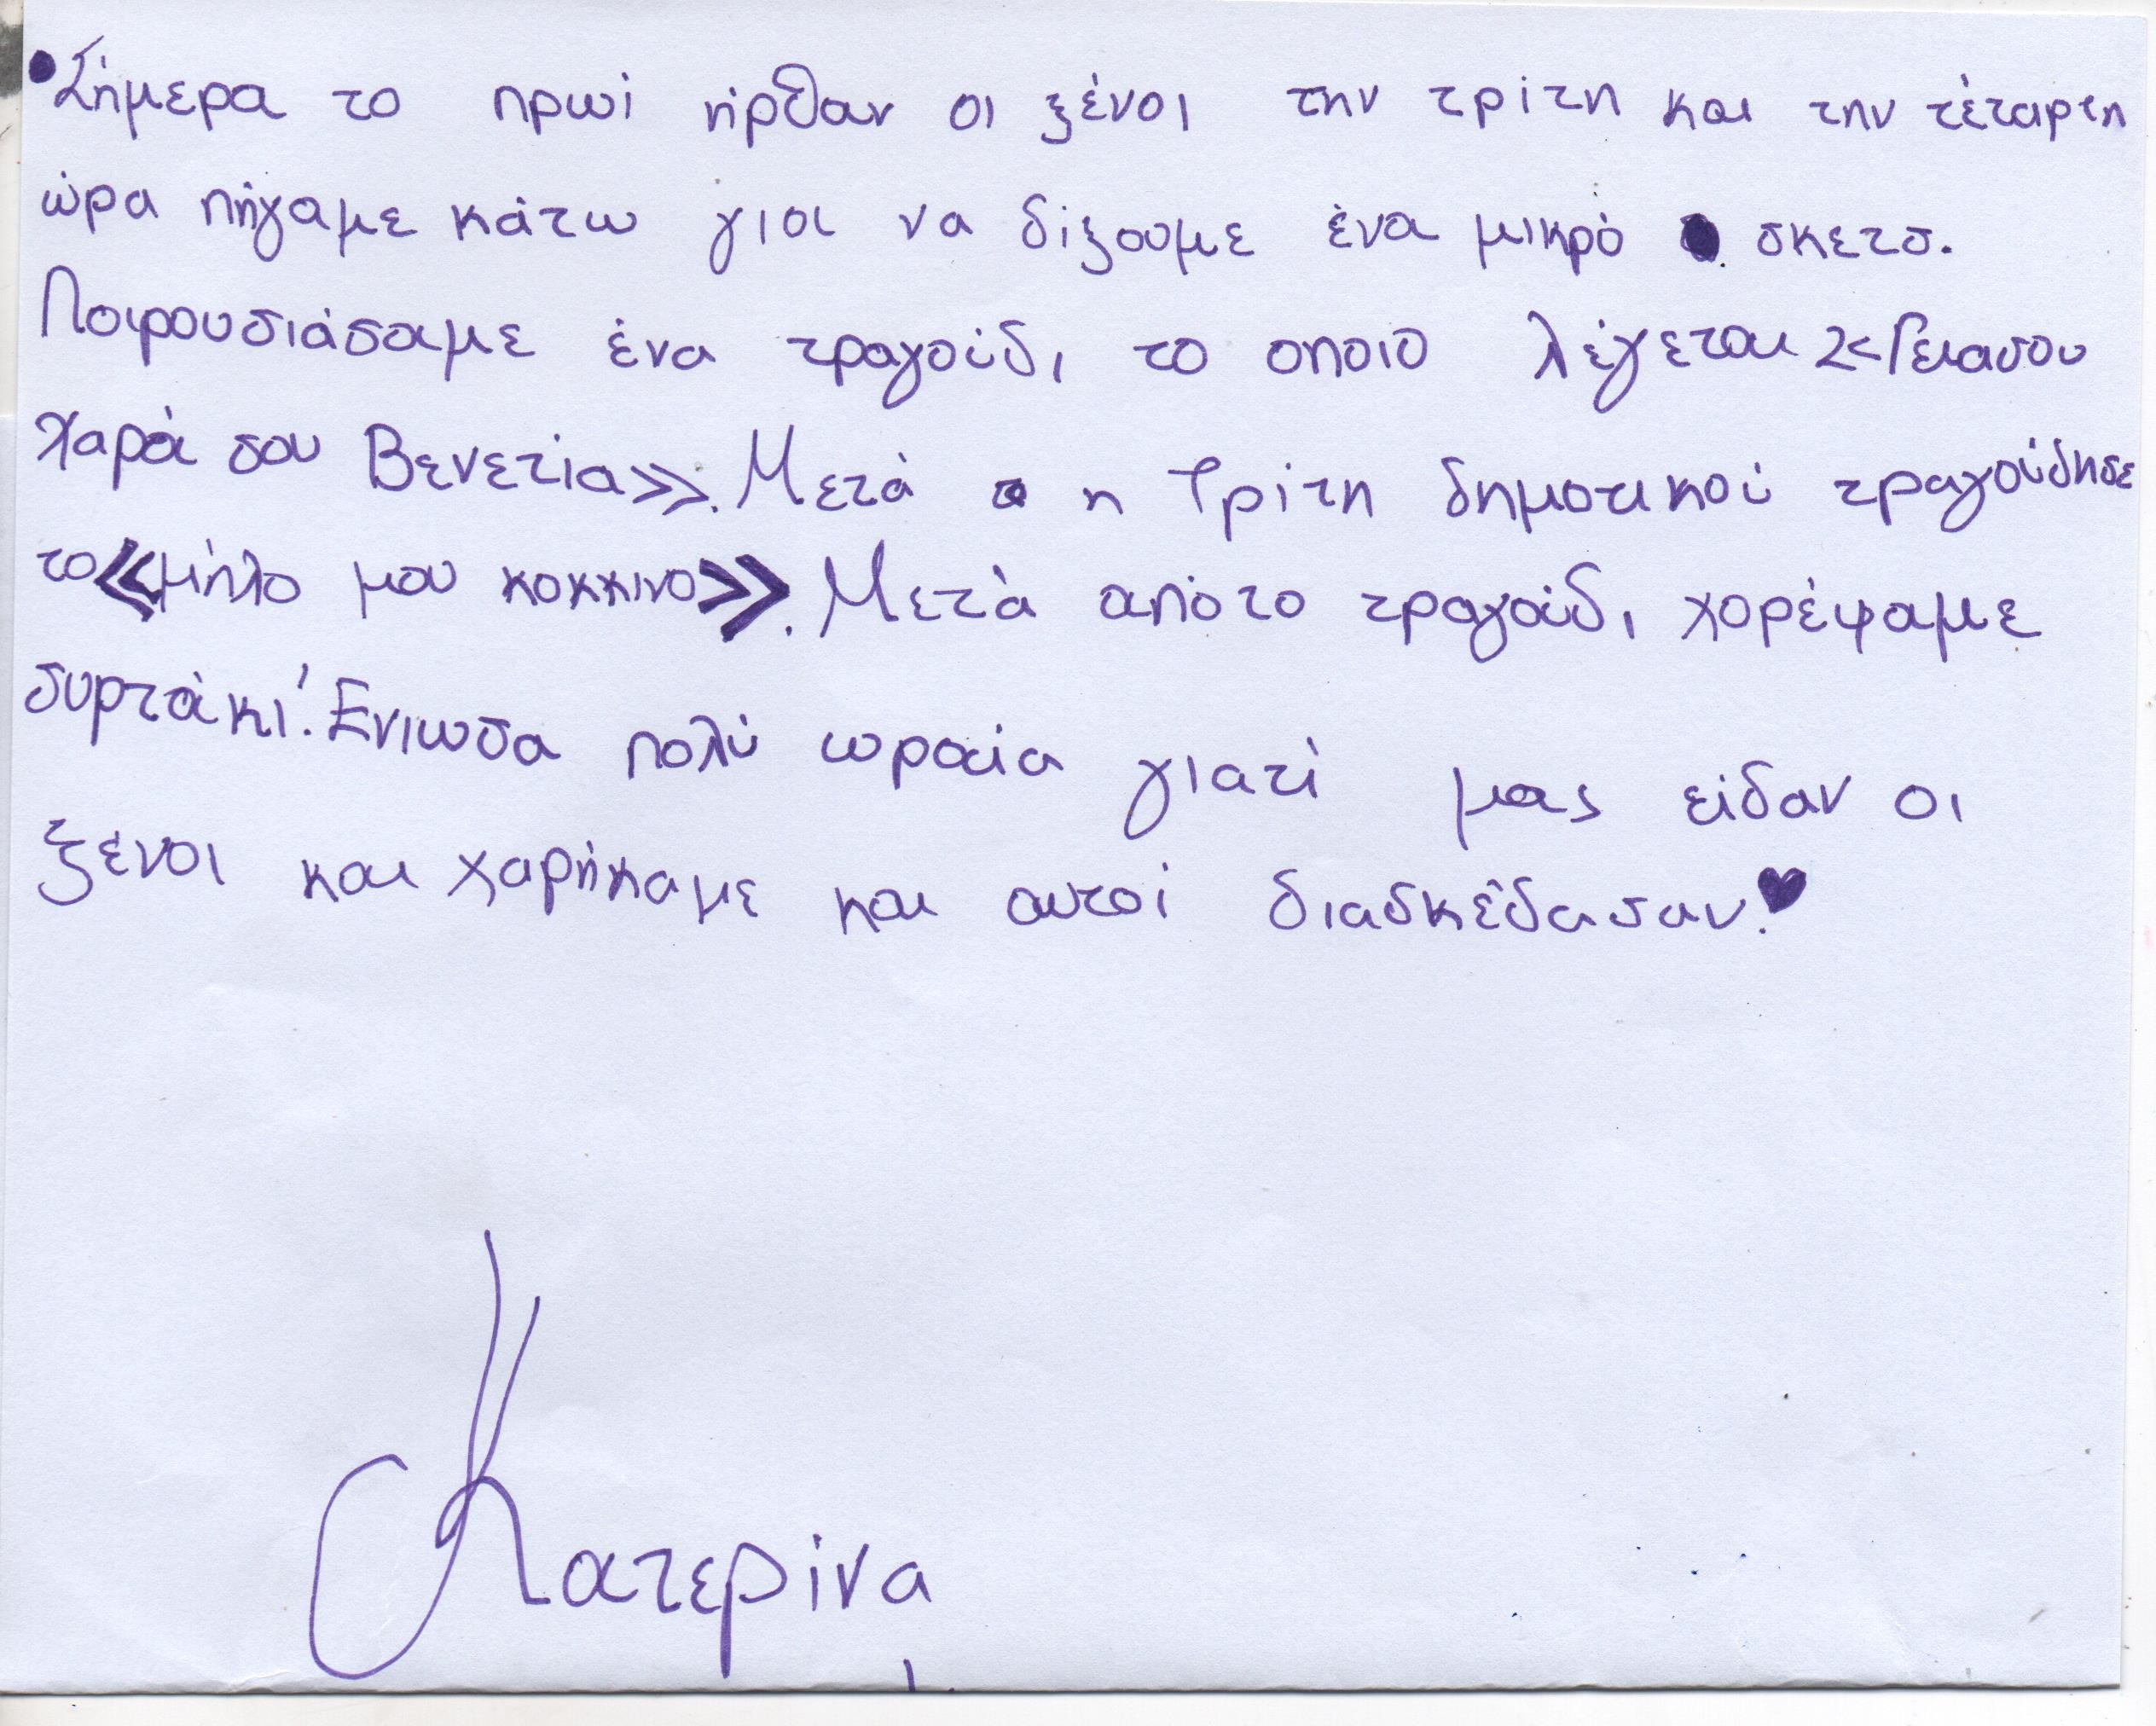 Σήμερα το πρωί ήρθαν οι ξένοι την τρίτη και την τέταρτη
ώρα πήγαμε κάτω για να δίξουμε ένα μικρό σκετσ.
Παρουσιάσαμε ένα τραγούδι το οποιο λέγεται <<Γειασου
χαρά σου Βενετία>>. Μετά η Τρίτη δημοτικού τραγούδησε
το <<μήλο μου κοκκινο>>. Μετά απότο τραγούδι χορέψαμε
συρτάκι! Ενιωσα πολύ ωραία γιατί μας είδαν οι
ξενοι και χαρήκαμε και αυτοί διασκέδασαν!♥
Κατερίνα